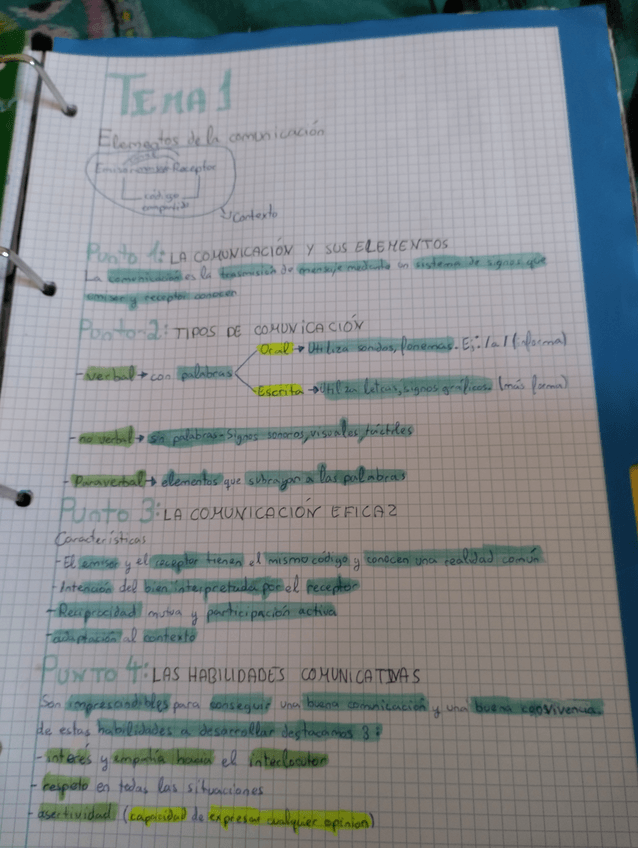 TEMA 1
Elementos de la comunicación
Emisor Receptor
código
compartido
Contexto
Punto 1: LA COMUNICACIÓN Y SUS ELEMENTOS
La comunicación es la trasmisión de mensaje mediante un sistema de signos que
emisor y receptor conocen
Punto 2: TIPOS DE COMUNICACIÓN
Oral → Utiliza sonidos, fonemas. Ej: /a/ (informa)
- verbal → con palabras
Escrita → Utiliza letras, signos gráficos. (más forma)
- no verbal → sin palabras - Signos sonoros, visuales, táctiles
- Paraverbal → elementos que subrayan a las palabras
Punto 3: LA COMUNICACIÓN EFICAZ
Características
- El emisor y el receptor tienen el mismo código y conocen una realidad común
- Intención del bien interpretada por el receptor
- Reciprocidad mutua y participación activa
- adaptación al contexto
PUNTO 4: LAS HABILIDADES COMUNICATIVAS
Son imprescindibles para conseguir una buena comunicación y una buena convivencia.
de estas habilidades a desarrollar destacamos 3:
- interés y empatía hacia el interlocutor
- respeto en todas las situaciones
- asertividad (capacidad de expresar cualquier opinion)